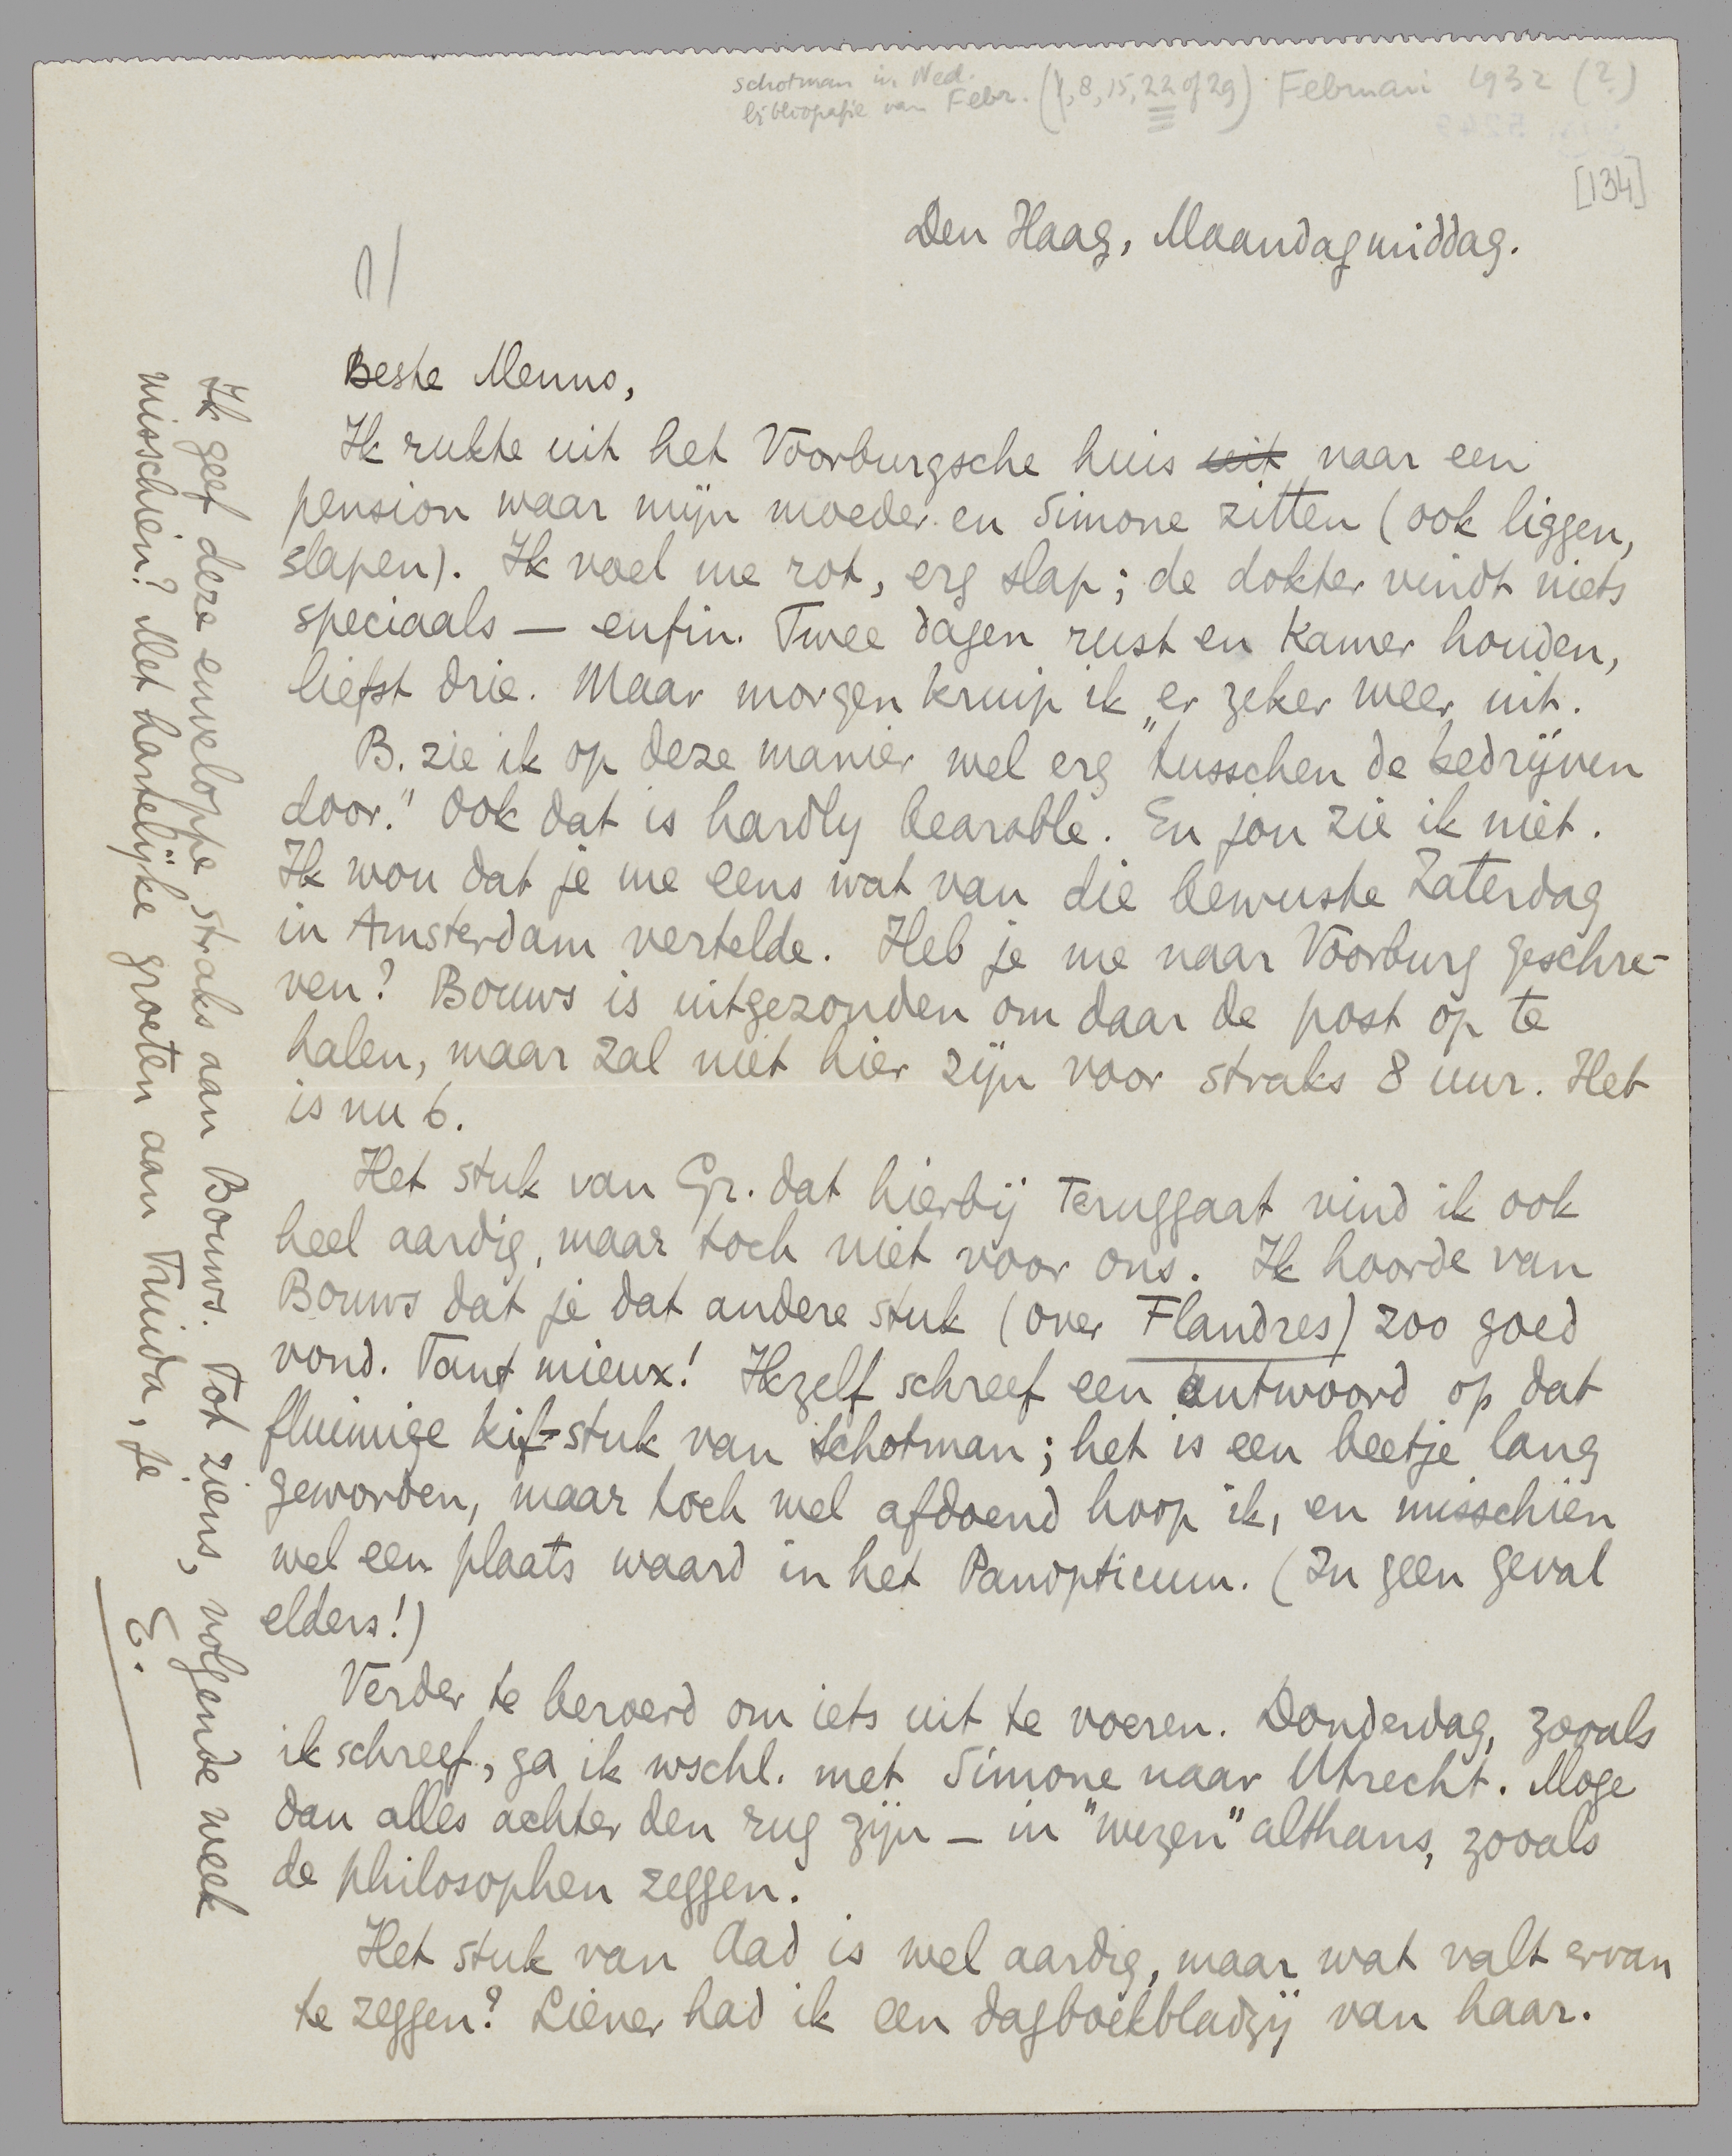 Schotman in Ned.
bibliografie van Febr. (1, 8, 15, 22 of 29) Februari 1932 (?)
[134]
Den Haag, Maandagmiddag.
1/
Beste Menno,
Ik rukte uit het Voorburgsche huis uit naar een
pension waar mijn moeder en Simone zitten (ook liggen,
slapen). Ik voel me rot, erg slap; de dokter vindt niets
speciaals — enfin. Twee dagen rust en kamer houden,
liefst drie. Maar morgen kruip ik er zeker weer uit.
B. zie ik op deze manier wel erg „tusschen de bedrijven
door." Ook dat is hardly bearable. En jou zie ik niet.
Ik wou dat je me eens wat van die bewuste Zaterdag
in Amsterdam vertelde. Heb je me naar Voorburg geschre-
ven? Bouws is uitgezonden om daar de post op te
halen, maar zal niet hier zijn voor straks 8 uur. Het
is nu 6.
Het stuk van Gr. dat hierbij teruggaat vind ik ook
heel aardig, maar toch niet voor ons. Ik hoorde van
Bouws dat je dat andere stuk (over Flandres) zoo goed
vond. Tant mieux! Ikzelf schreef een antwoord op dat
fluimige kif-stuk van Schotman; het is een beetje lang
geworden, maar toch wel afdoend hoop ik, en misschien
wel een plaats waard in het Panopticum. (In geen geval
elders!)
Verder te beroerd om iets uit te voeren. Donderdag, zooals
ik schreef, ga ik wschl. met Simone naar Utrecht. Moge
dan alles achter den rug zijn — in "wezen" althans, zooals
de philosophen zeggen.
Het stuk van Aad is wel aardig, maar wat valt ervan
te zeggen? Liever had ik een dagboekbladzij van haar.
Ik geef deze enveloppe straks aan Bouws. Tot ziens, volgende week
misschien? Met hartelijke groeten aan Truida, je
E.